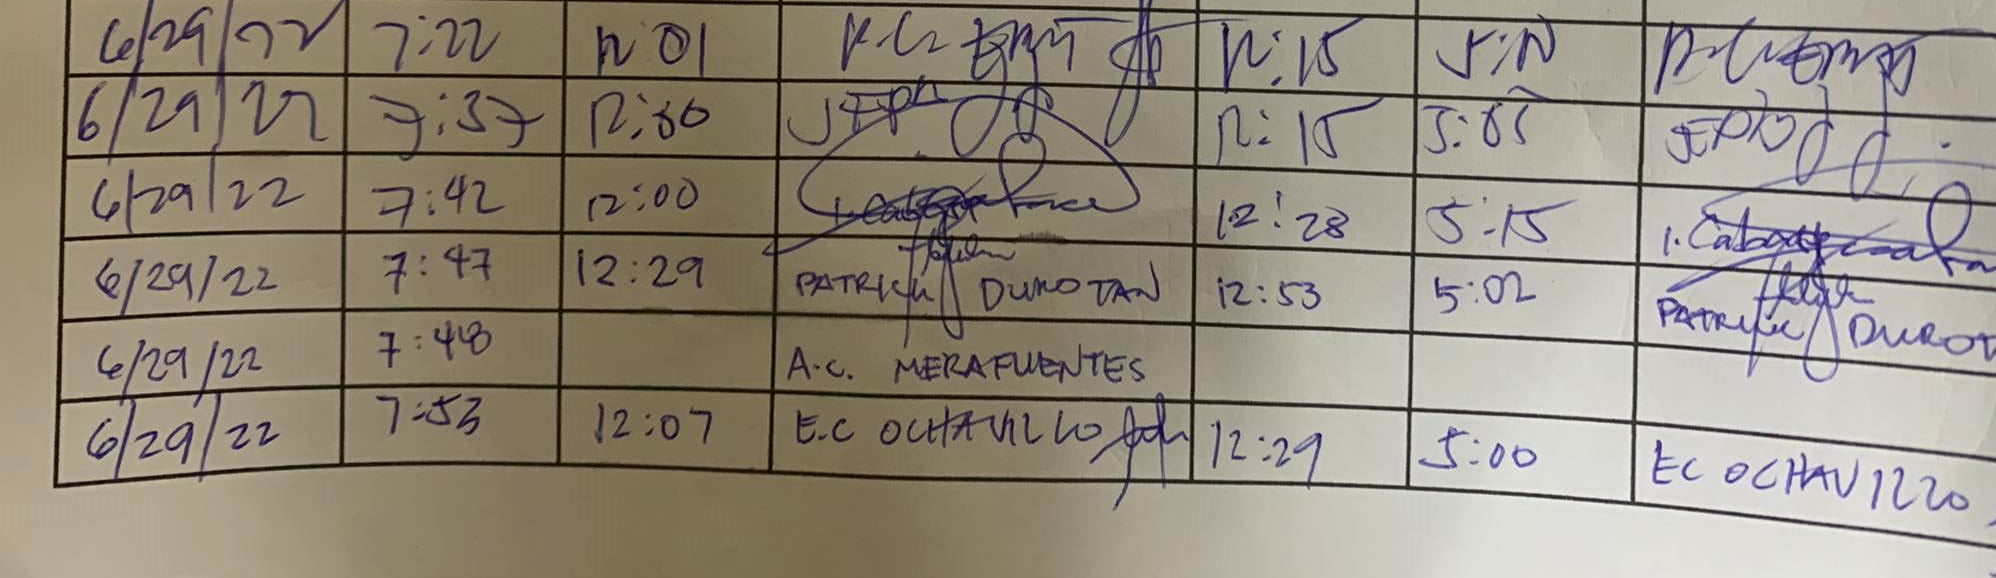 6/29/22 7:22 12:01 12:15
6/29/22 7:37 12:00 JEPH 12:15 5:05 JEPH
6/29/22 7:42 12:00 12:28 5:15
6/29/22 7:47 12:29 PATRICK DUROTAN 12:53 5:02 PATRICK DUROT
6/29/22 7:48 A.C. MERAFUENTES
6/29/22 7:53 12:07 E.C OCHAVILLO 12:29 5:00 EC OCHAVILLO